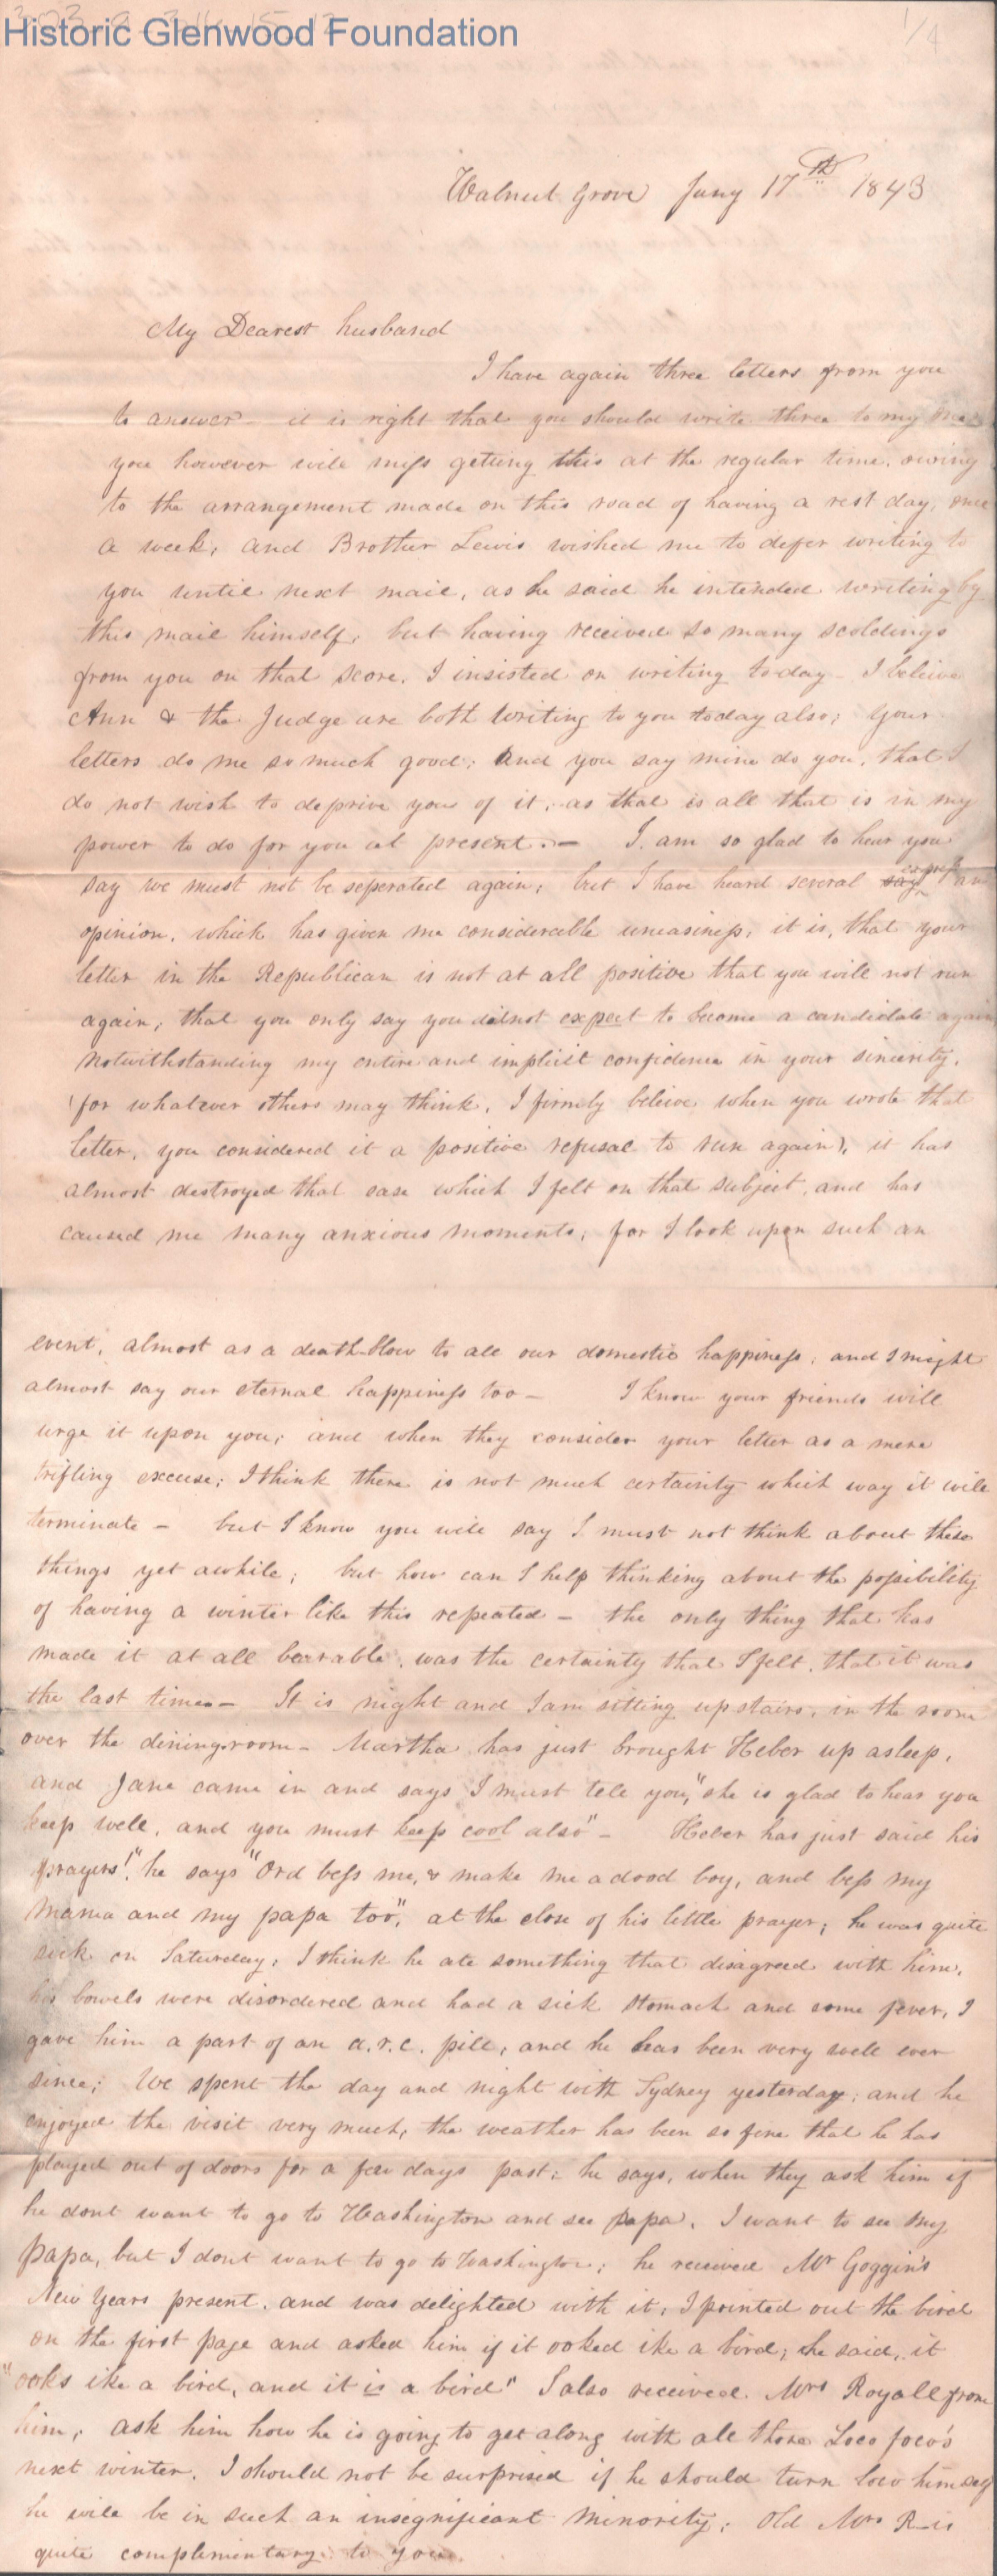 Historic Glenwood Foundation
1/4
Walnut Grove Jany 17th 1843
My Dearest husband
I have again three letters from you
to answer - it is right that you should write three to my one
you however will miss getting this at the regular time, owing
to the arrangement made on this road of having a rest day, once
a week, and Brother Lewis wished me to defer writing to
you until next mail, as he said he intended writing by
this mail himself, but having received so many scoldings
from you on that score, I insisted on writing today - I beleive
Ann & the Judge are both writing to you today also; Your
letters do me so much good; and you say mine do you, that I
do not wish to deprive you of it, as that is all that is in my
power to do for you at present. - I am so glad to hear you
say we must not be seperated again; but I have heard several say express an
opinion, which has given me considerable uneasiness, it is, that your
letter in the Republican is not at all positive that you will not run
again; that you only say you did not expect to become a candidate again
Notwithstanding my entire and implicit confidence in your sincerity,
(for whatever others may think, I firmly beleive when you wrote that
letter, you considered it a positive refusal to run again), it has
almost destroyed that ease which I felt on that subject, and has
caused me many anxious moments, for I look upon such an
event, almost as a death-blow to all our domestic happiness, and I might
almost say our eternal happiness too - I know your friends will
urge it upon you; and when they consider your letter as a mere
trifling excuse; I think there is not much certainty which way it will
terminate - but I know you will say I must not think about these
things yet awhile; but how can I help thinking about the possibility
of having a winter like this repeated - the only thing that has
made it at all bearable, was the certainty that I felt, that it was
the last time - It is night and I am sitting up stairs, in the room
over the dining-room - Martha has just brought Heber up asleep,
and Jane came in and says I must tell you, "she is glad to hear you
keep well, and you must keep cool also" - Heber has just said his
prayers! he says "Ord bess me, & make me a dood boy, and bess my
Mama and my papa too", at the close of his little prayer; he was quite
sick on Saturday, I think he ate something that disagreed with him,
his bowels were disordered and had a sick stomach and some fever, I
gave him a part of an a.r.c. pill, and he has been very well ever
since; We spent the day and night with Sydney yesterday; and he
enjoyed the visit very much, the weather has been so fine that he has
played out of doors for a few days past; he says, when they ask him if
he dont want to go to Washington and see papa, I want to see my
papa, but I dont want to go to Washington; he received Mr Goggin's
New Years present, and was delighted with it, I pointed out the bird
on the first page and asked him if it ooked ike a bird; he said, it
"ooks ike a bird, and it is a bird" I also received Mrs Royall from
him; ask him how he is going to get along with all those Loco foco's
next winter. I should not be surprised if he should turn loco himself
he will be in such an insegnificant minority; Old Mrs R is
quite complimentary to you.